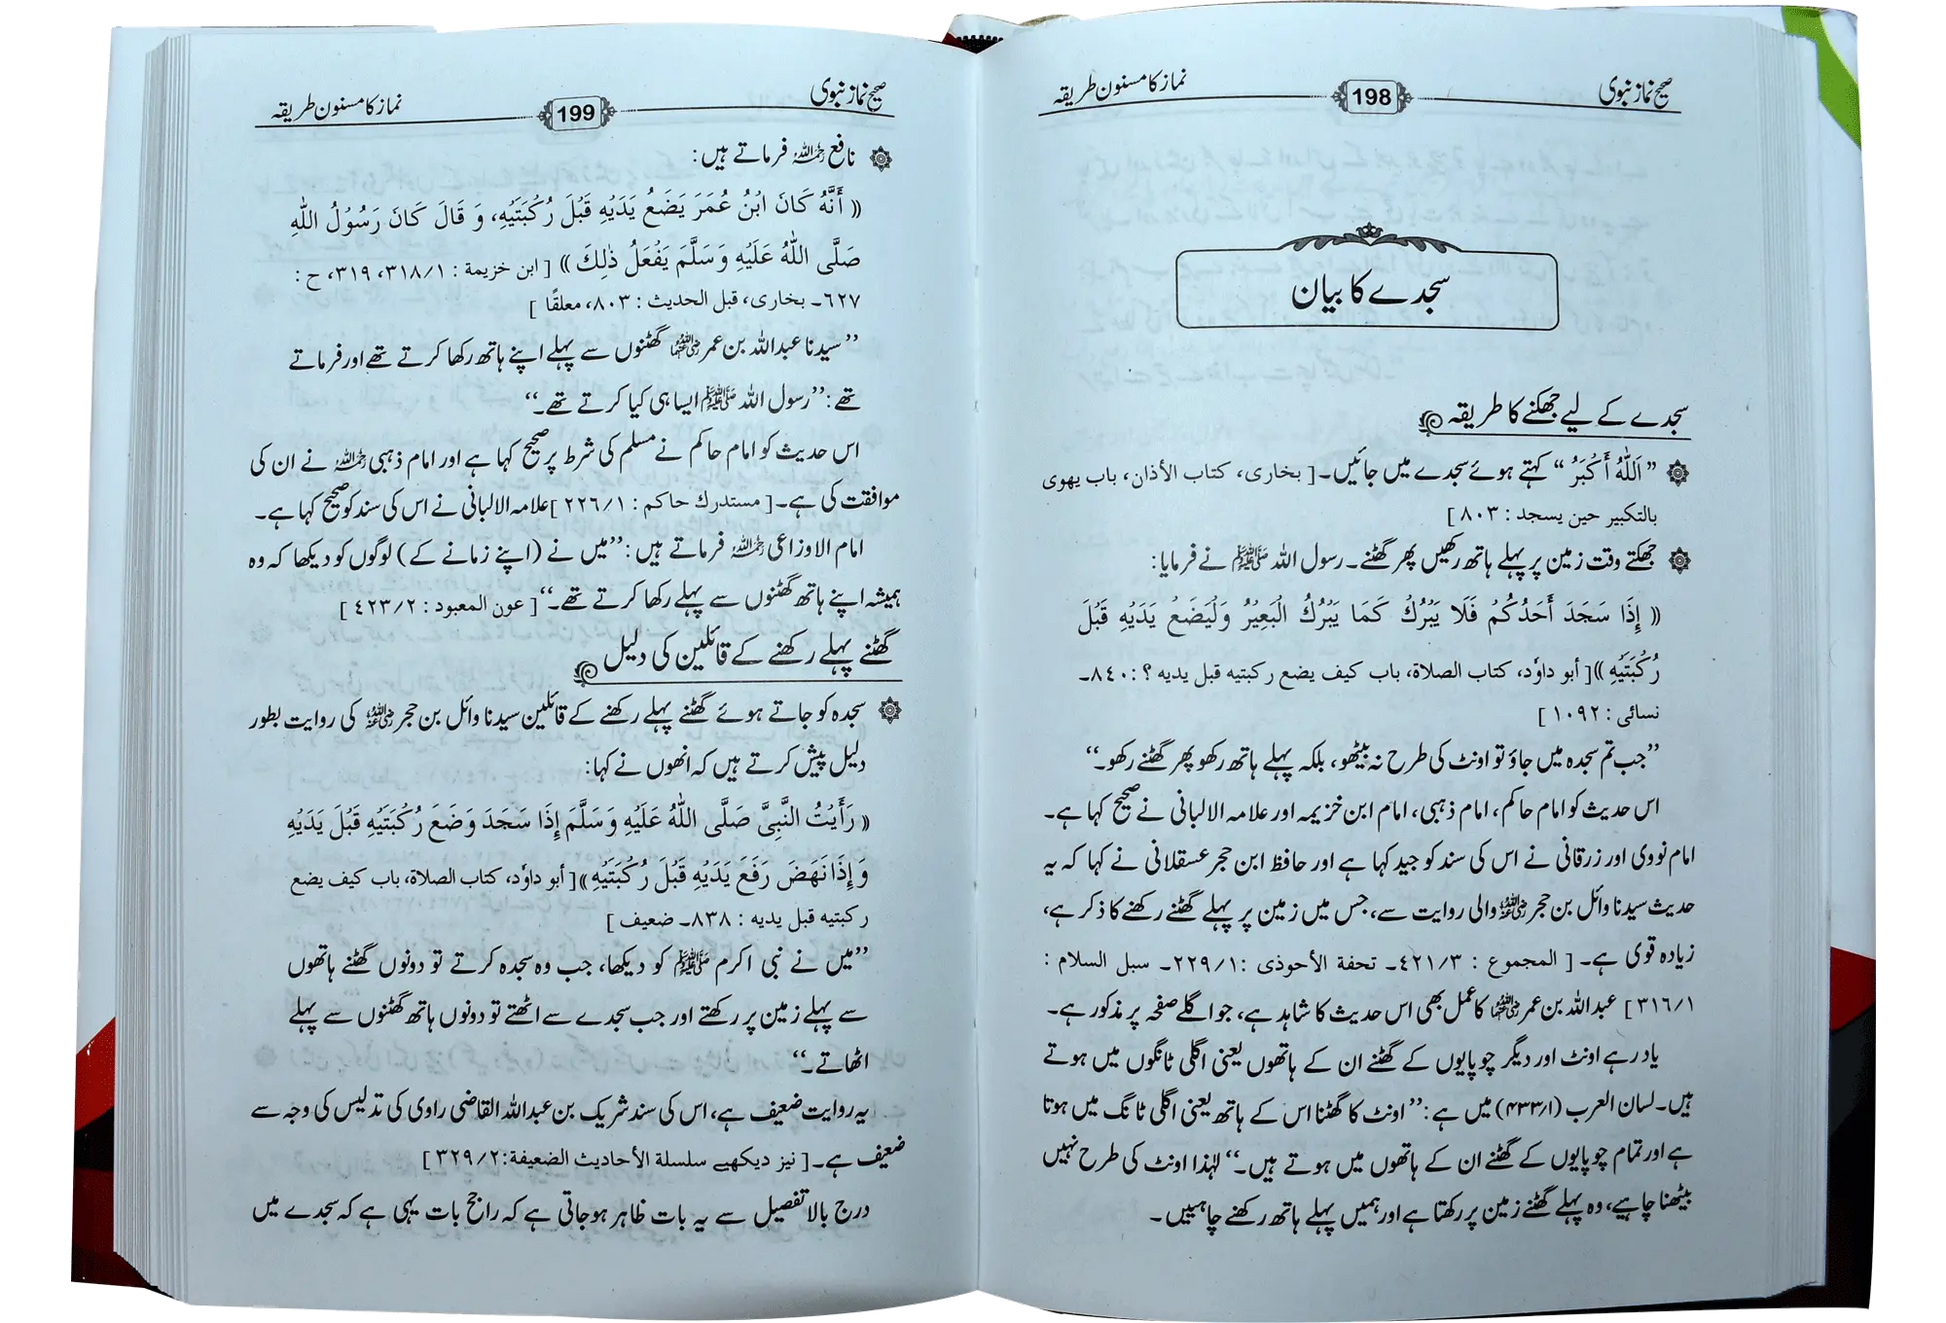 صحیح نماز نبوی 198 نماز کا مسنون طریقہ
سجدے کا بیان
سجدے کے لیے جھکنے کا طریقہ
”اَللّٰهُ أَكْبَرُ“ کہتے ہوئے سجدے میں جائیں۔ [ بخاری، کتاب الأذان، باب یھوی
بالتکبیر حین یسجد : ٨٠٣ ]
جھکتے وقت زمین پر پہلے ہاتھ رکھیں پھر گھٹنے۔ رسول اللہ ﷺ نے فرمایا:
(( إِذَا سَجَدَ أَحَدُكُمْ فَلَا يَبْرُكْ كَمَا يَبْرُكُ الْبَعِيْرُ وَلْيَضَعْ يَدَيْهِ قَبْلَ
رُكْبَتَيْهِ )) [ أبو داوٗد، کتاب الصلاة، باب کیف یضع رکبتیه قبل یدیه ؟ : ٨٤٠۔
نسائی : ١٠٩٢ ]
”جب تم سجدہ میں جاؤ تو اونٹ کی طرح نہ بیٹھو، بلکہ پہلے ہاتھ رکھو پھر گھٹنے رکھو۔“
اس حدیث کو امام حاکم، امام ذہبی، امام ابن خزیمہ اور علامہ الالبانی نے صحیح کہا ہے۔
امام نووی اور زرقانی نے اس کی سند کو جید کہا ہے اور حافظ ابن حجر عسقلانی نے کہا کہ یہ
حدیث سیدنا وائل بن حجر رضی اللہ عنہ والی روایت سے، جس میں زمین پر پہلے گھٹنے رکھنے کا ذکر ہے،
زیادہ قوی ہے۔ [ المجموع : ٤٢١/٣۔ تحفة الأحوذی : ٢٢٩/١۔ سبل السلام :
٣١٦/١ ] عبداللہ بن عمر رضی اللہ عنہما کا عمل بھی اس حدیث کا شاہد ہے، جو اگلے صفحہ پر مذکور ہے۔
یاد رہے اونٹ اور دیگر چوپایوں کے گھٹنے ان کے ہاتھوں یعنی اگلی ٹانگوں میں ہوتے
ہیں۔ لسان العرب (۴۳۳/۱) میں ہے: ”اونٹ کا گھٹنا اس کے ہاتھ یعنی اگلی ٹانگ میں ہوتا
ہے اور تمام چوپایوں کے گھٹنے ان کے ہاتھوں میں ہوتے ہیں۔“ لہٰذا اونٹ کی طرح نہیں
بیٹھنا چاہیے، وہ پہلے گھٹنے زمین پر رکھتا ہے اور ہمیں پہلے ہاتھ رکھنے چاہییں۔
صحیح نماز نبوی 199 نماز کا مسنون طریقہ
نافع رحمہ اللہ فرماتے ہیں:
(( أَنَّهُ كَانَ ابْنُ عُمَرَ يَضَعُ يَدَيْهِ قَبْلَ رُكْبَتَيْهِ، وَ قَالَ كَانَ رَسُوْلُ اللهِ
صَلَّى اللهُ عَلَيْهِ وَ سَلَّمَ يَفْعَلُ ذٰلِكَ )) [ ابن خزیمة : ٣١٨/١، ٣١٩، ح :
٦٢٧۔ بخاری، قبل الحدیث : ٨٠٣، معلقًا ]
”سیدنا عبداللہ بن عمر رضی اللہ عنہما گھٹنوں سے پہلے اپنے ہاتھ رکھا کرتے تھے اور فرماتے
تھے: ”رسول اللہ ﷺ ایسا ہی کیا کرتے تھے۔“
اس حدیث کو امام حاکم نے مسلم کی شرط پر صحیح کہا ہے اور امام ذہبی رحمہ اللہ نے ان کی
موافقت کی ہے۔ [ مستدرک حاکم : ٢٢٦/١ ] علامہ الالبانی نے اس کی سند کو صحیح کہا ہے۔
امام الاوزاعی رحمہ اللہ فرماتے ہیں: ”میں نے (اپنے زمانے کے) لوگوں کو دیکھا کہ وہ
ہمیشہ اپنے ہاتھ گھٹنوں سے پہلے رکھا کرتے تھے۔“ [ عون المعبود : ٤٢٣/٢ ]
گھٹنے پہلے رکھنے کے قائلین کی دلیل
سجدہ کو جاتے ہوئے گھٹنے پہلے رکھنے کے قائلین سیدنا وائل بن حجر رضی اللہ عنہ کی روایت بطور
دلیل پیش کرتے ہیں کہ انھوں نے کہا:
(( رَأَيْتُ النَّبِيَّ صَلَّى اللهُ عَلَيْهِ وَ سَلَّمَ إِذَا سَجَدَ وَضَعَ رُكْبَتَيْهِ قَبْلَ يَدَيْهِ
وَ إِذَا نَهَضَ رَفَعَ يَدَيْهِ قَبْلَ رُكْبَتَيْهِ )) [ أبو داوٗد، کتاب الصلاة، باب کیف یضع
رکبتیه قبل یدیه : ٨٣٨۔ ضعیف ]
”میں نے نبی اکرم ﷺ کو دیکھا، جب وہ سجدہ کرتے تو دونوں گھٹنے ہاتھوں
سے پہلے زمین پر رکھتے اور جب سجدے سے اٹھتے تو دونوں ہاتھ گھٹنوں سے پہلے
اٹھاتے۔“
یہ روایت ضعیف ہے، اس کی سند شریک بن عبداللہ القاضی راوی کی تدلیس کی وجہ سے
ضعیف ہے۔ [ نیز دیکھیے سلسلة الأحادیث الضعیفة: ٣٢٩/٢ ]
درج بالا تفصیل سے یہ بات ظاہر ہو جاتی ہے کہ راجح بات یہی ہے کہ سجدے میں